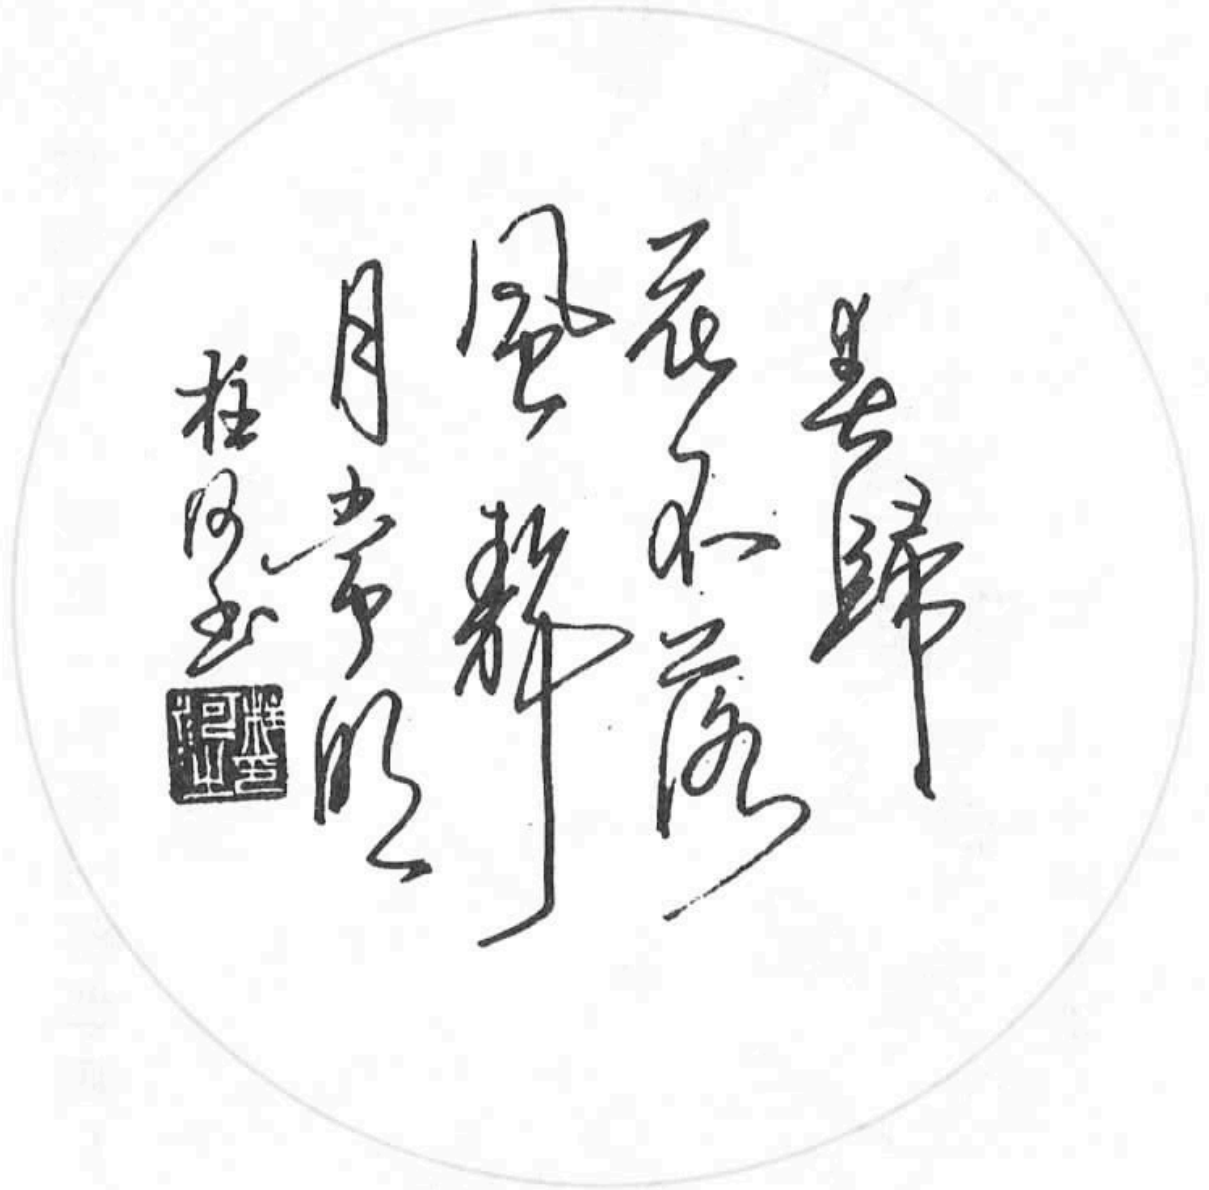 春歸
花不落
風靜
月常明
桂河書